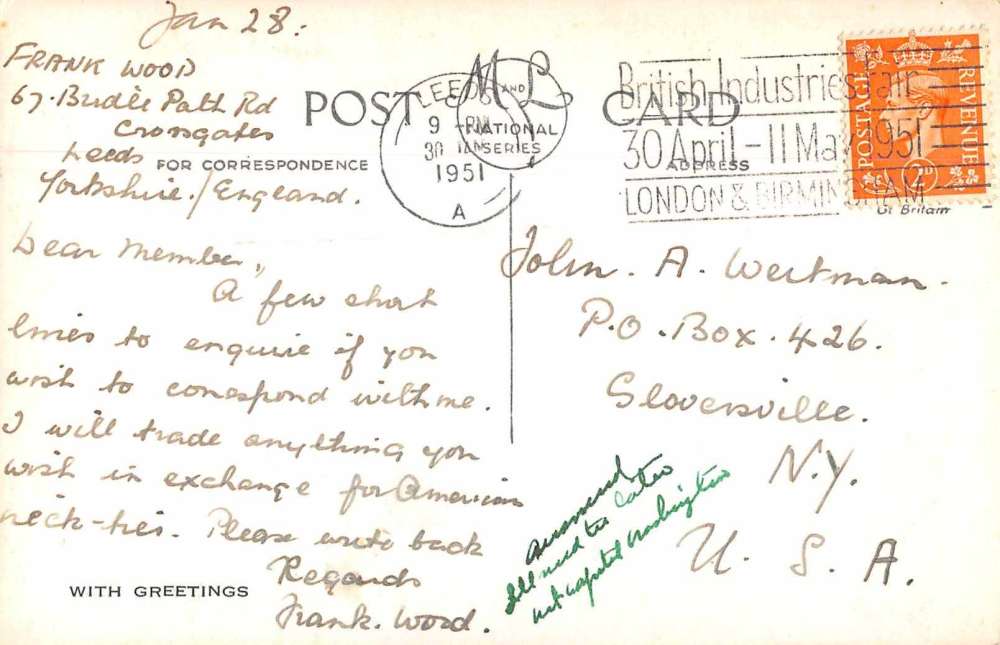 Jan 28.
FRANK WOOD
67. Budle Path Rd
Crossgates
Leeds
Yorkshire./England.
POST CARD
M AND L
NATIONAL
SERIES
FOR CORRESPONDENCE
ADDRESS
LEEDS
9 - PM
30 JAN
1951
A
British Industries Fair
30 April - 11 May 1951
LONDON & BIRMINGHAM
POSTAGE
REVENUE
2D
Gt Britain
Dear Member,
A few short
lines to enquire if you
wish to correspond with me.
I will trade anything you
wish in exchange for American
neck-ties. Please write back
Regards
Frank. Wood.
WITH GREETINGS
John. A. Weitman.
P.O. Box. 426.
Gloversville.
N.Y.
U. S. A.
answered
later
Washington